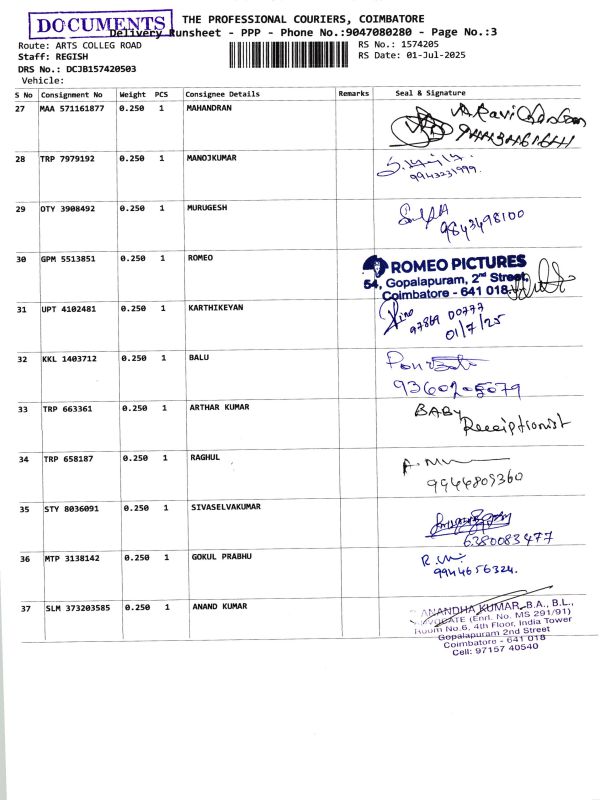 DOCUMENTS
THE PROFESSIONAL COURIERS, COIMBATORE
Delivery Runsheet - PPP - Phone No.:9047080280 - Page No.:3
Route: ARTS COLLEG ROAD
RS No.: 1574205
Staff: REGISH
RS Date: 01-Jul-2025
DRS No.: DCJB157420503
Vehicle:
S No Consignment No Weight PCS Consignee Details Remarks Seal & Signature
27 MAA 571161877 0.250 1 MAHANDRAN
28 TRP 7979192 0.250 1 MANOJKUMAR
9943231999.
29 OTY 3908492 0.250 1 MURUGESH
9843498100
30 GPM 5513851 0.250 1 ROMEO
ROMEO PICTURES
54, Gopalapuram, 2nd Street,
Coimbatore - 641 018.
31 UPT 4102481 0.250 1 KARTHIKEYAN
97869 00777
01/7/25
32 KKL 1403712 0.250 1 BALU
33 TRP 663361 0.250 1 ARTHAR KUMAR
BABY
Receiptionist
34 TRP 658187 0.250 1 RAGHUL
9944809360
35 STY 8036091 0.250 1 SIVASELVAKUMAR
6380083477
36 MTP 3138142 0.250 1 GOKUL PRABHU
9944656324.
37 SLM 373203585 0.250 1 ANAND KUMAR
ANANDHA KUMAR, B.A., B.L.,
ADVOCATE (Enrl. No. MS 291/91)
Room No.6, 4th Floor, India Tower
Gopalapuram 2nd Street
Coimbatore - 641 018
Cell: 97157 40540